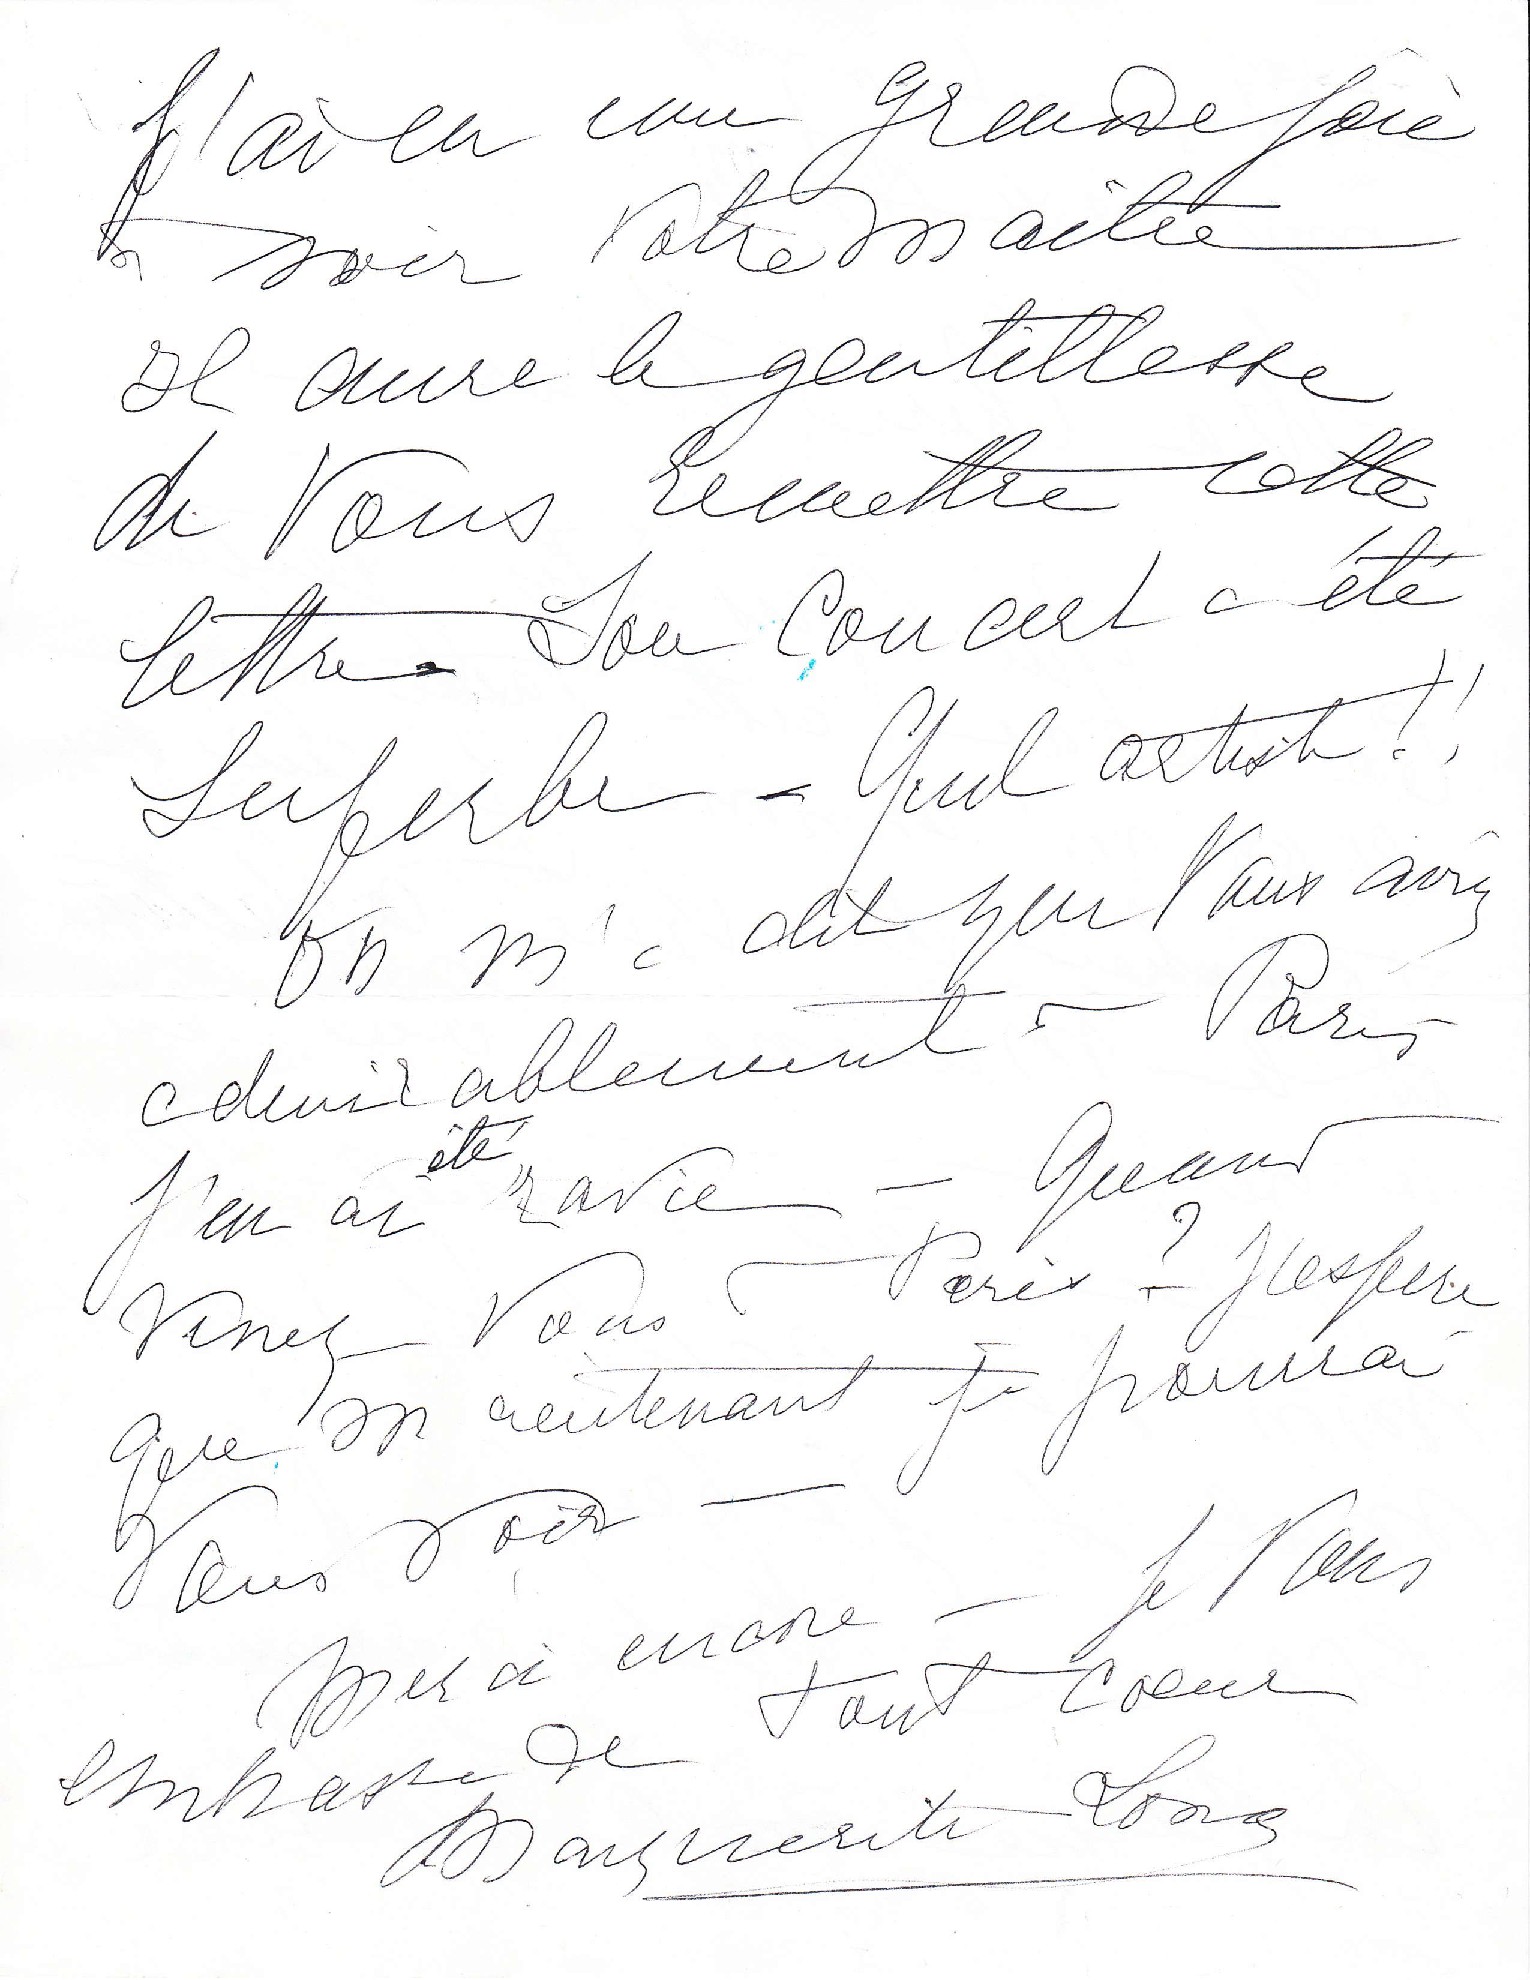 J'ai eu une grande joie
à voir votre Maître
Il aura la gentillesse
de Vous remettre cette
lettre - Son Concert a été
Superbe - Quel artiste !!
On m'a dit que Vous aviez
admirablement à Paris
J'en ai été ravie - Quand
Venez Vous à Paris ? - J'espère
que maintenant je pourrai
Vous voir -
Merci encore - Je Vous
embrasse de tout coeur
Marguerite Long